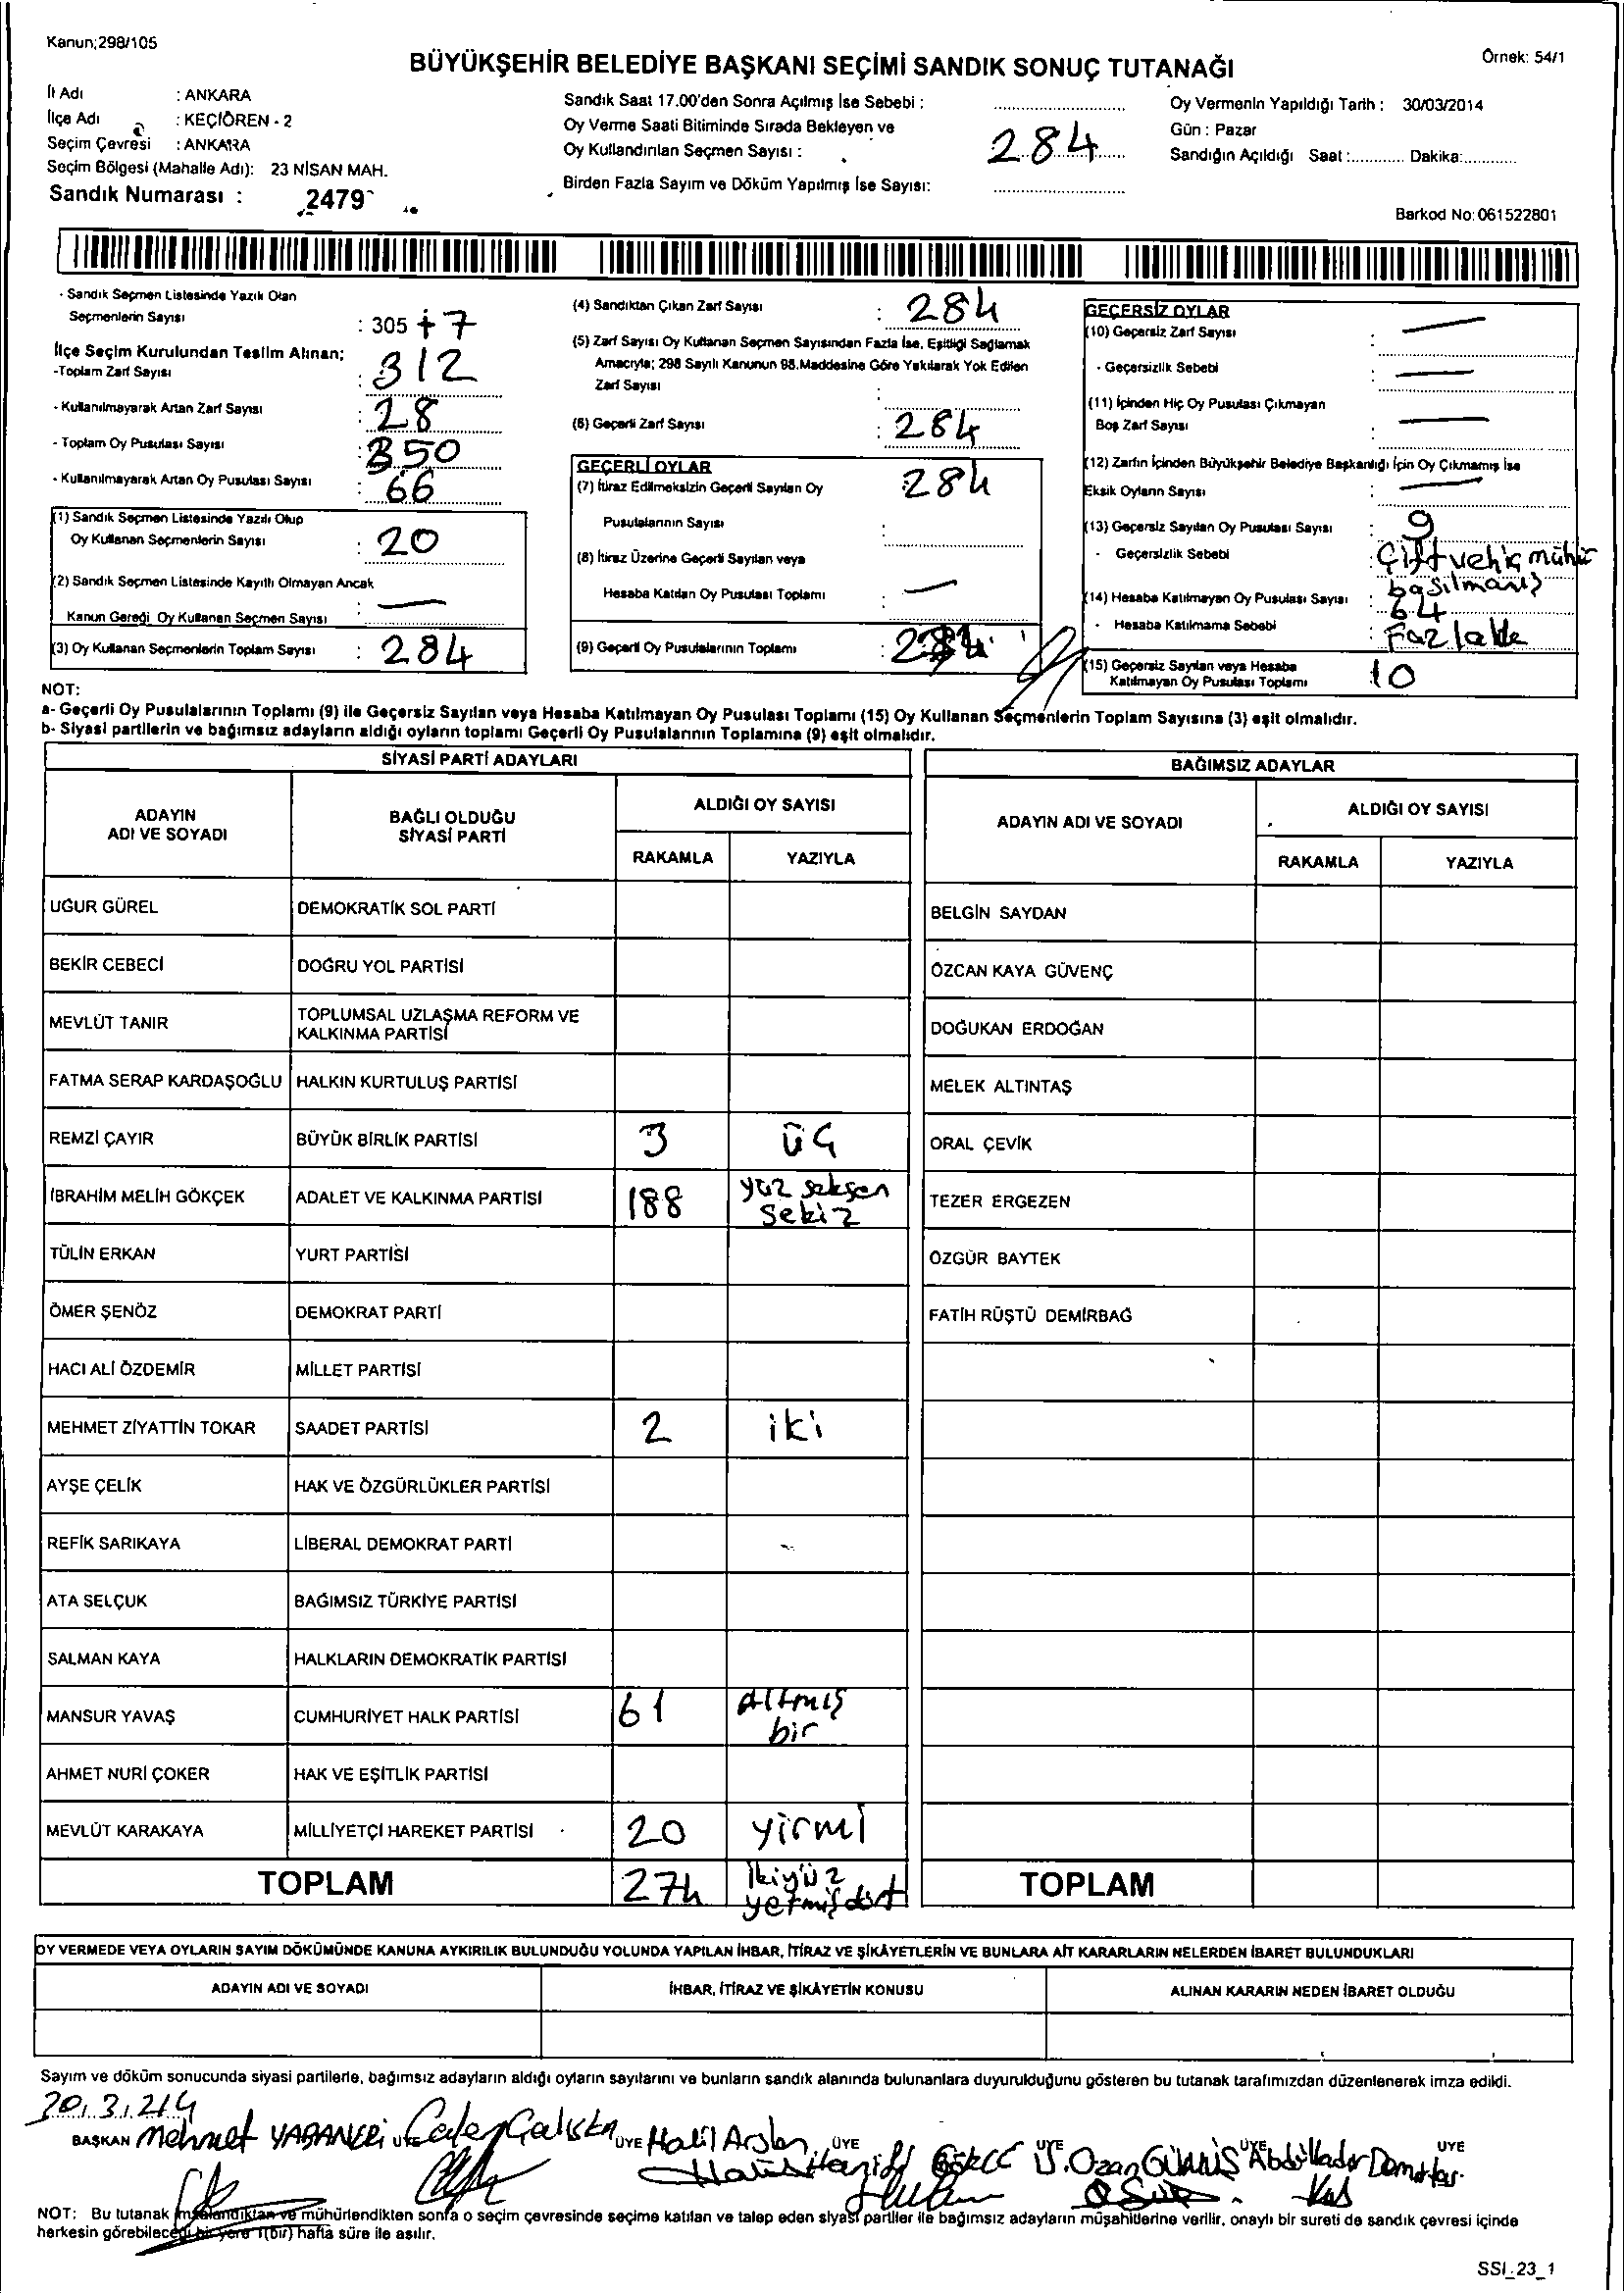 Kanun;298/105
BÜYÜKŞEHİR BELEDİYE BAŞKANI SEÇİMİ SANDIK SONUÇ TUTANAĞI
Örnek: 54/1
İl Adı : ANKARA
İlçe Adı : KEÇİÖREN - 2
Seçim Çevresi : ANKARA
Seçim Bölgesi (Mahalle Adı): 23 NİSAN MAH.
Sandık Numarası : 2479
Sandık Saat 17.00'den Sonra Açılmış İse Sebebi :
Oy Verme Saati Bitiminde Sırada Bekleyen ve
Oy Kullandırılan Seçmen Sayısı : 284
Birden Fazla Sayım ve Döküm Yapılmış İse Sayısı:
Oy Vermenin Yapıldığı Tarih : 30/03/2014
Gün : Pazar
Sandığın Açıldığı Saat :............ Dakika:............
Barkod No: 061522801
- Sandık Seçmen Listesinde Yazılı Olan
Seçmenlerin Sayısı : 305 + 7
İlçe Seçim Kurulundan Teslim Alınan;
-Toplam Zarf Sayısı : 312
- Kullanılmayarak Artan Zarf Sayısı : 28
- Toplam Oy Pusulası Sayısı : 350
- Kullanılmayarak Artan Oy Pusulası Sayısı : 66
(1) Sandık Seçmen Listesinde Yazılı Olup
Oy Kullanan Seçmenlerin Sayısı : 20
(2) Sandık Seçmen Listesinde Kayıtlı Olmayan Ancak
Kanun Gereği Oy Kullanan Seçmen Sayısı : —
(3) Oy Kullanan Seçmenlerin Toplam Sayısı : 284
(4) Sandıktan Çıkan Zarf Sayısı : 284
(5) Zarf Sayısı Oy Kullanan Seçmen Sayısından Fazla İse, Eşitliği Sağlamak
Amacıyla; 298 Sayılı Kanunun 98.Maddesine Göre Yakılarak Yok Edilen
Zarf Sayısı :
(6) Geçerli Zarf Sayısı : 284
GEÇERLİ OYLAR
(7) İtiraz Edilmeksizin Geçerli Sayılan Oy 284
Pusulalarının Sayısı :
(8) İtiraz Üzerine Geçerli Sayılan veya
Hesaba Katılan Oy Pusulası Toplamı : —
(9) Geçerli Oy Pusulalarının Toplamı :
GEÇERSİZ OYLAR
(10) Geçersiz Zarf Sayısı : —
- Geçersizlik Sebebi : —
(11) İçinden Hiç Oy Pusulası Çıkmayan
Boş Zarf Sayısı : —
(12) Zarfın İçinden Büyükşehir Belediye Başkanlığı İçin Oy Çıkmamış İse
Eksik Oyların Sayısı : —
(13) Geçersiz Sayılan Oy Pusulası Sayısı : 9
- Geçersizlik Sebebi : Çift ve hiç mühür
basılmamış
(14) Hesaba Katılmayan Oy Pusulası Sayısı :
- Hesaba Katılmama Sebebi :
(15) Geçersiz Sayılan veya Hesaba
Katılmayan Oy Pusulası Toplamı 10
NOT:
a- Geçerli Oy Pusulalarının Toplamı (9) ile Geçersiz Sayılan veya Hesaba Katılmayan Oy Pusulası Toplamı (15) Oy Kullanan Seçmenlerin Toplam Sayısına (3) eşit olmalıdır.
b- Siyasi partilerin ve bağımsız adayların aldığı oyların toplamı Geçerli Oy Pusulalarının Toplamına (9) eşit olmalıdır.
SİYASİ PARTİ ADAYLARI
ADAYIN
ADI VE SOYADI
BAĞLI OLDUĞU
SİYASİ PARTİ
ALDIĞI OY SAYISI
RAKAMLA YAZIYLA
UĞUR GÜREL DEMOKRATİK SOL PARTİ
BEKİR CEBECİ DOĞRU YOL PARTİSİ
MEVLÜT TANIR TOPLUMSAL UZLAŞMA REFORM VE
KALKINMA PARTİSİ
FATMA SERAP KARDAŞOĞLU HALKIN KURTULUŞ PARTİSİ
REMZİ ÇAYIR BÜYÜK BİRLİK PARTİSİ 3 üç
İBRAHİM MELİH GÖKÇEK ADALET VE KALKINMA PARTİSİ 188 yüz seksen
sekiz
TÜLİN ERKAN YURT PARTİSİ
ÖMER ŞENÖZ DEMOKRAT PARTİ
HACI ALİ ÖZDEMİR MİLLET PARTİSİ
MEHMET ZİYATTİN TOKAR SAADET PARTİSİ 2 iki
AYŞE ÇELİK HAK VE ÖZGÜRLÜKLER PARTİSİ
REFİK SARIKAYA LİBERAL DEMOKRAT PARTİ
ATA SELÇUK BAĞIMSIZ TÜRKİYE PARTİSİ
SALMAN KAYA HALKLARIN DEMOKRATİK PARTİSİ
MANSUR YAVAŞ CUMHURİYET HALK PARTİSİ 61 Altmış
bir
AHMET NURİ ÇOKER HAK VE EŞİTLİK PARTİSİ
MEVLÜT KARAKAYA MİLLİYETÇİ HAREKET PARTİSİ 20 yirmi
TOPLAM 274 İkiyüz
yetmiş dört
BAĞIMSIZ ADAYLAR
ADAYIN ADI VE SOYADI
ALDIĞI OY SAYISI
RAKAMLA YAZIYLA
BELGİN SAYDAN
ÖZCAN KAYA GÜVENÇ
DOĞUKAN ERDOĞAN
MELEK ALTINTAŞ
ORAL ÇEVİK
TEZER ERGEZEN
ÖZGÜR BAYTEK
FATİH RÜŞTÜ DEMİRBAĞ
TOPLAM
OY VERMEDE VEYA OYLARIN SAYIM DÖKÜMÜNDE KANUNA AYKIRILIK BULUNDUĞU YOLUNDA YAPILAN İHBAR, İTİRAZ VE ŞİKÂYETLERİN VE BUNLARA AİT KARARLARIN NELERDEN İBARET BULUNDUKLARI
ADAYIN ADI VE SOYADI İHBAR, İTİRAZ VE ŞİKÂYETİN KONUSU ALINAN KARARIN NEDEN İBARET OLDUĞU
Sayım ve döküm sonucunda siyasi partilerle, bağımsız adayların aldığı oyların sayılarını ve bunların sandık alanında bulunanlara duyurulduğunu gösteren bu tutanak tarafımızdan düzenlenerek imza edildi.
30.3.214
BAŞKAN Mehmet ÜYE ÜYE Halil Arslan ÜYE ÜYE Ozan ÜYE ÜYE
NOT: Bu tutanak imzalandıktan ve mühürlendikten sonra o seçim çevresinde seçime katılan ve talep eden siyasi partiler ile bağımsız adayların müşahitlerine verilir, onaylı bir sureti de sandık çevresi içinde
herkesin görebileceği bir yere 1(bir) hafta süre ile asılır.
SSI_23_1